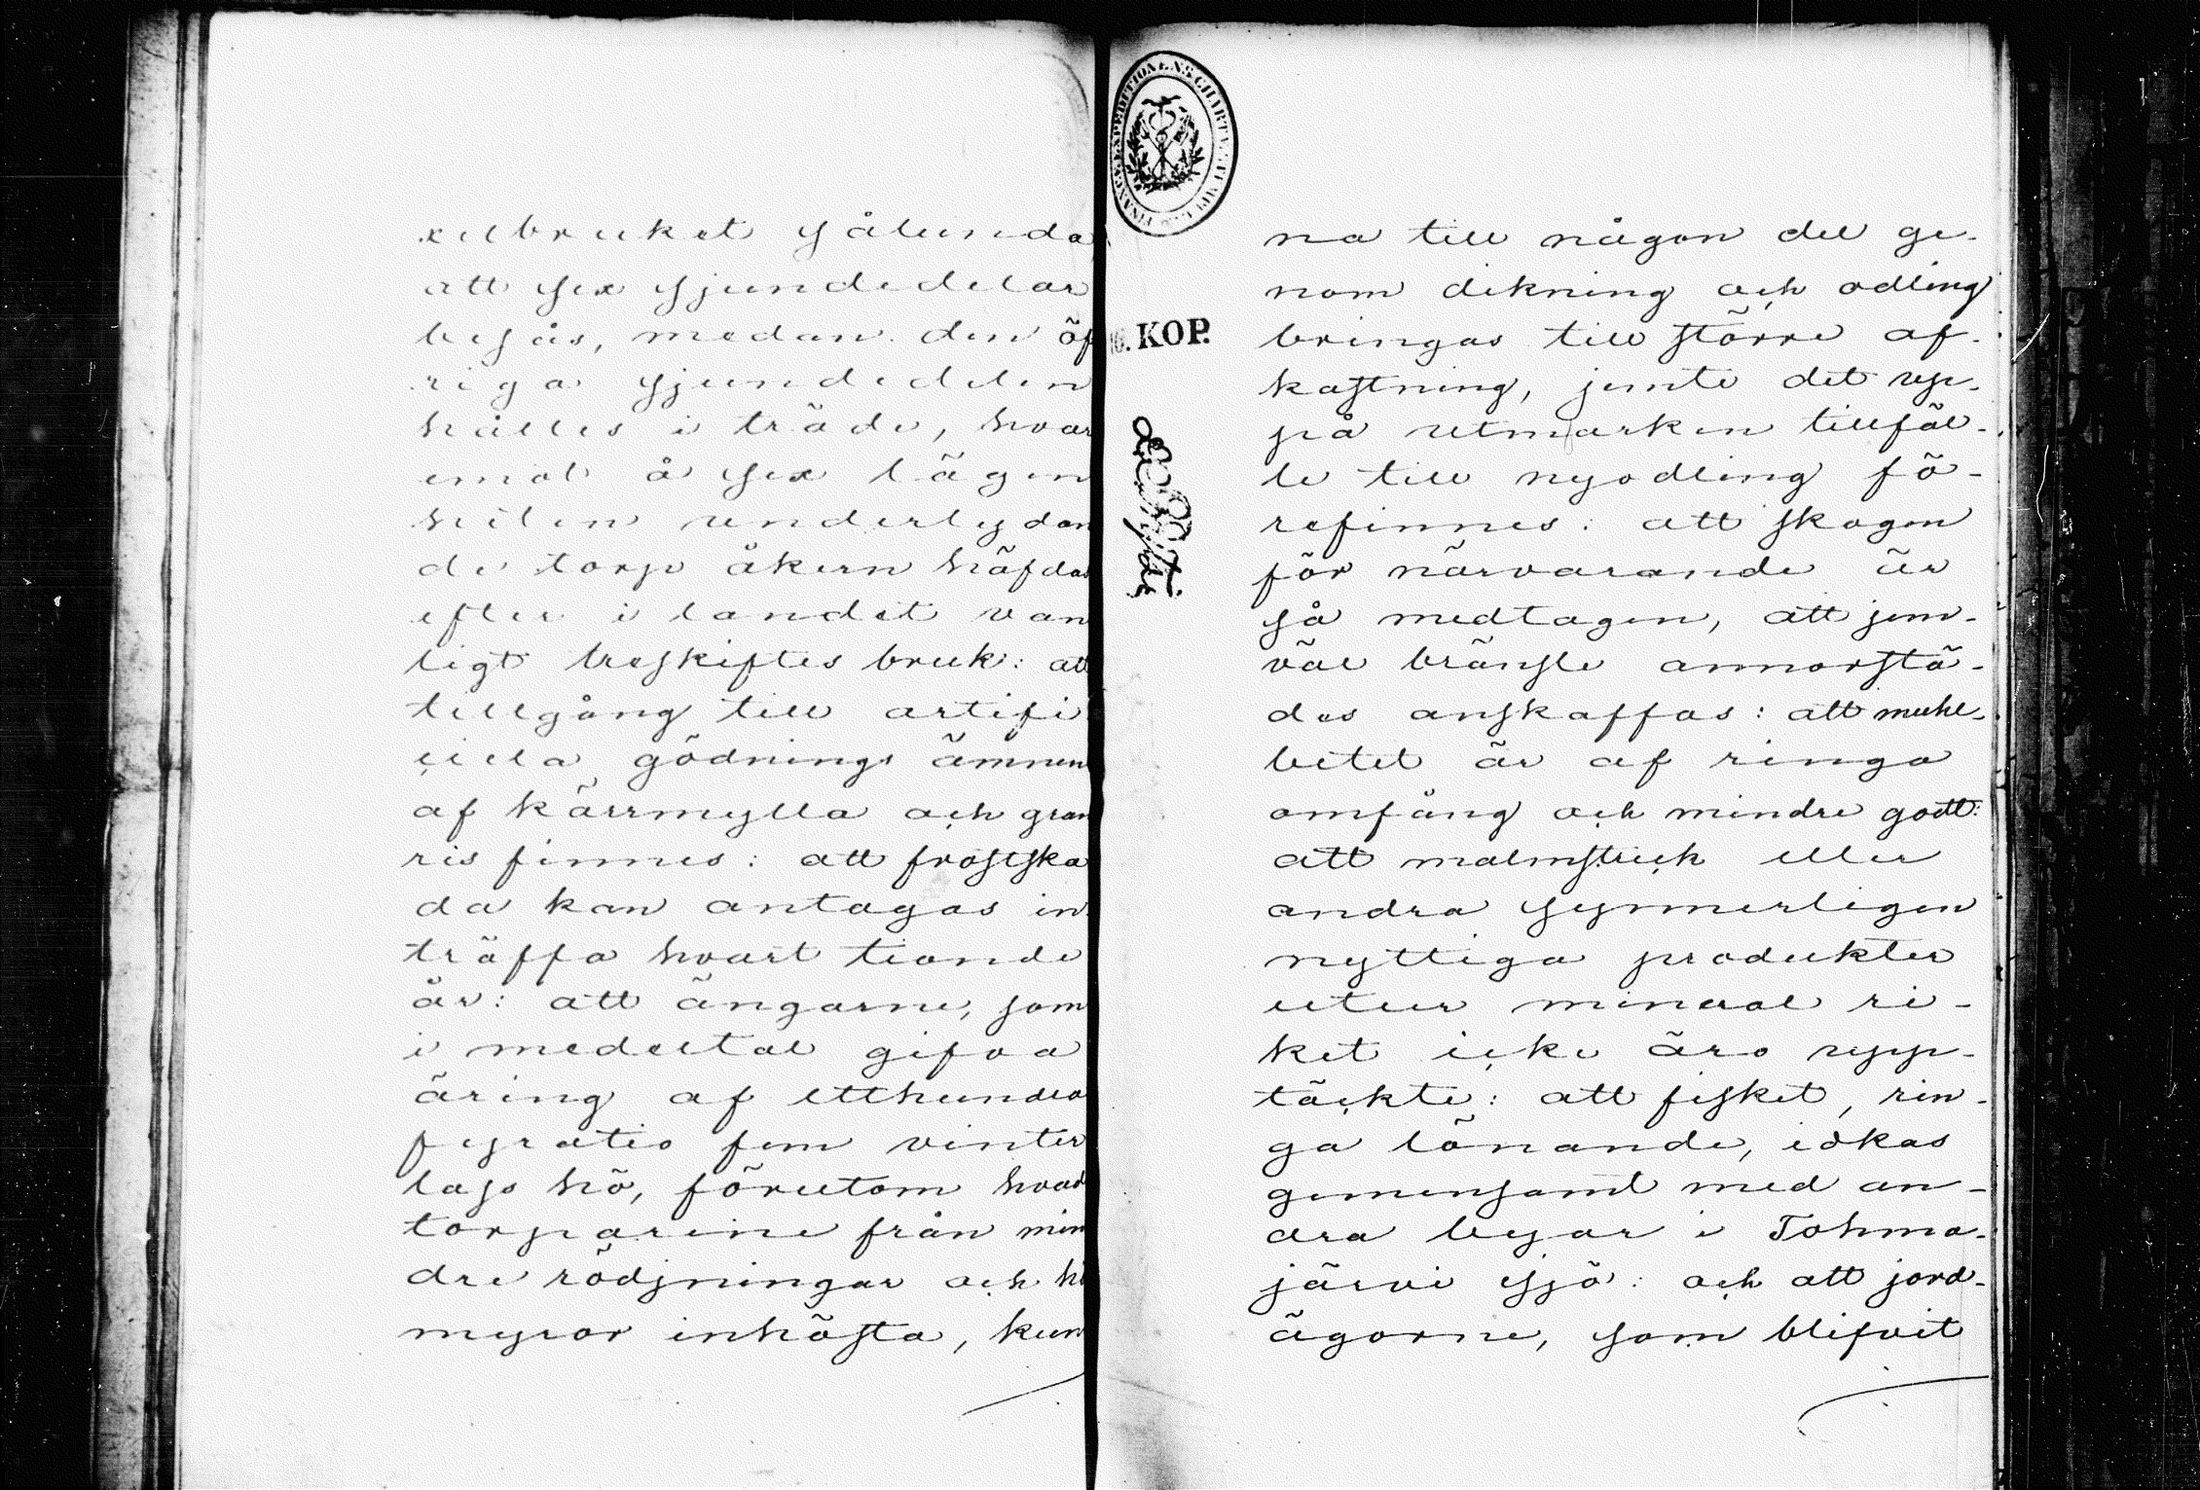 xelbruket sålunda
att sex sjundedelar
besås, medan den öf
riga sjundedelen
hålles i träde, hvar
emot å sex lägen
heten underlydan
de torp åkern häfdas
efter i landet van
ligt treskiftes bruk: att
tillgång till artifi
ciela gödnings ämnen
af kärrmylla och gran
ris finnes: att frostska
da kan antagas in
träffa hvart tionde
år: att ängarne, som
i medeltal gifva
äring af etthundra
fyratio fem vinter
lass hö, förutom hvad
torparene från min
dre rödjningar och
myror inhösta, kun
FINANCE EXPEDITIONENS CHARTÆ
KOP.
na till någon del ge-
nom dikning och odling
bringas till större af-
kastning, jemte det up-
på utmarken tillfäl-
le till nyodling fö-
refinnes: att skogen
för närvarande är
så medtagen, att jem-
väl bränsle annorstä-
des anskaffas: att muhl-
betet är af ringa
omfång och mindre godt:
att malmstreck eller
andra synnerligen
nyttiga produkter
utur mineral ri-
ket icke äro upp-
täckte: att fisket, rin-
ga lönande, idkas
gemensamt med an-
dra byar i Tohma-
järvi sjö: och att jord-
ägorne, som blifvit